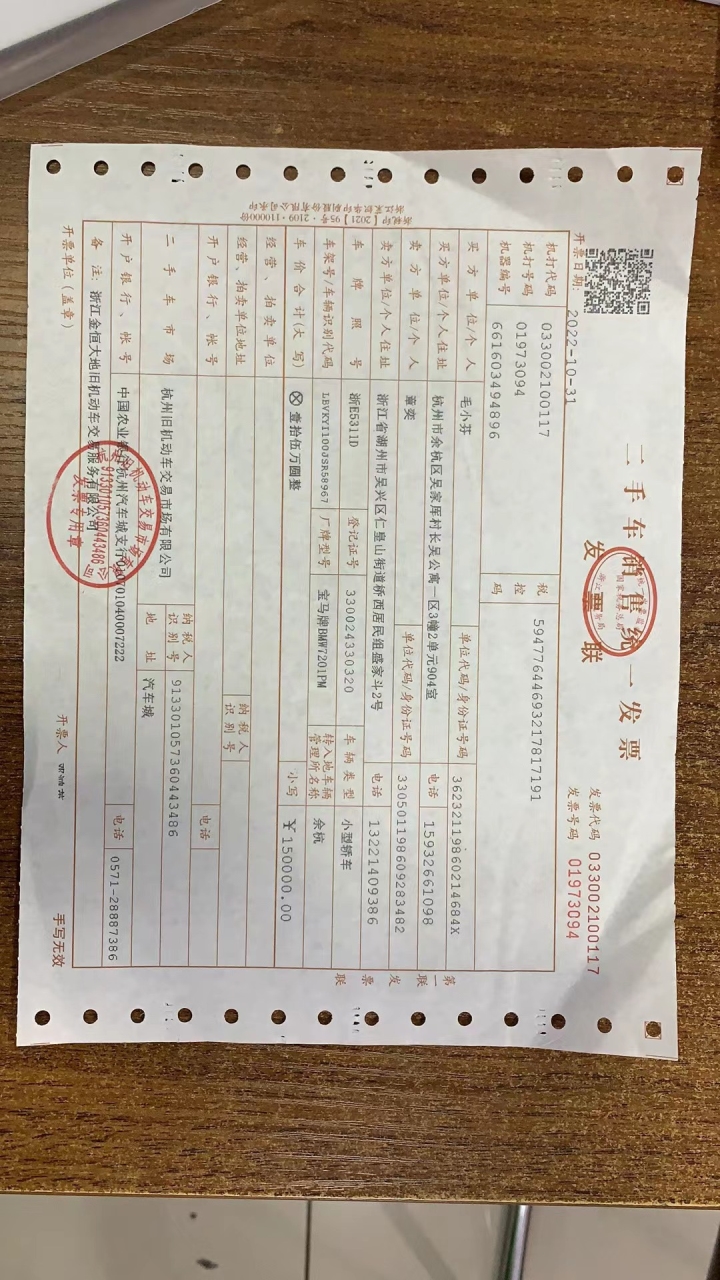 二手车销售统一发票
发票联
发票代码 033002100117
发票号码 01973094
开票日期: 2022-10-31
机打代码 033002100117
机打号码 01973094
机器编号 661603494896
税控码 59477644693217817191
买方单位/个人 毛小芬 单位代码/身份证号码 36232119860214684X
买方单位/个人住址 杭州市余杭区吴家厍村长吴公寓一区3幢2单元904室 电话 15932661098
卖方单位/个人 章奕 单位代码/身份证号码 330501198609283482
卖方单位/个人住址 浙江省湖州市吴兴区仁皇山街道桥西居民组盛家斗2号 电话 13221409386
车牌照号 浙E5311D 登记证号 330024330320 车辆类型 小型轿车
车架号/车辆识别代码 LBVKY1100JSR58967 厂牌型号 宝马牌BMW7201PM 转入地车辆管理所名称 余杭
车价合计(大写) ⊗壹拾伍万圆整 小写 ￥150000.00
经营、拍卖单位
经营、拍卖单位地址 纳税人识别号
开户银行、帐号 电话
二手车市场 杭州旧机动车交易市场有限公司 纳税人识别号 913301057360443486
地址 汽车城
开户银行、帐号 中国农业银行杭州汽车城支行 电话 0571-28887386
备注: 浙江金恒大地旧机动车交易服务有限公司
开票单位(盖章) 开票人 手写无效
第一联 发票联
浙税印【2021】95号·2109·110000份
913301057360443486
发票专用章